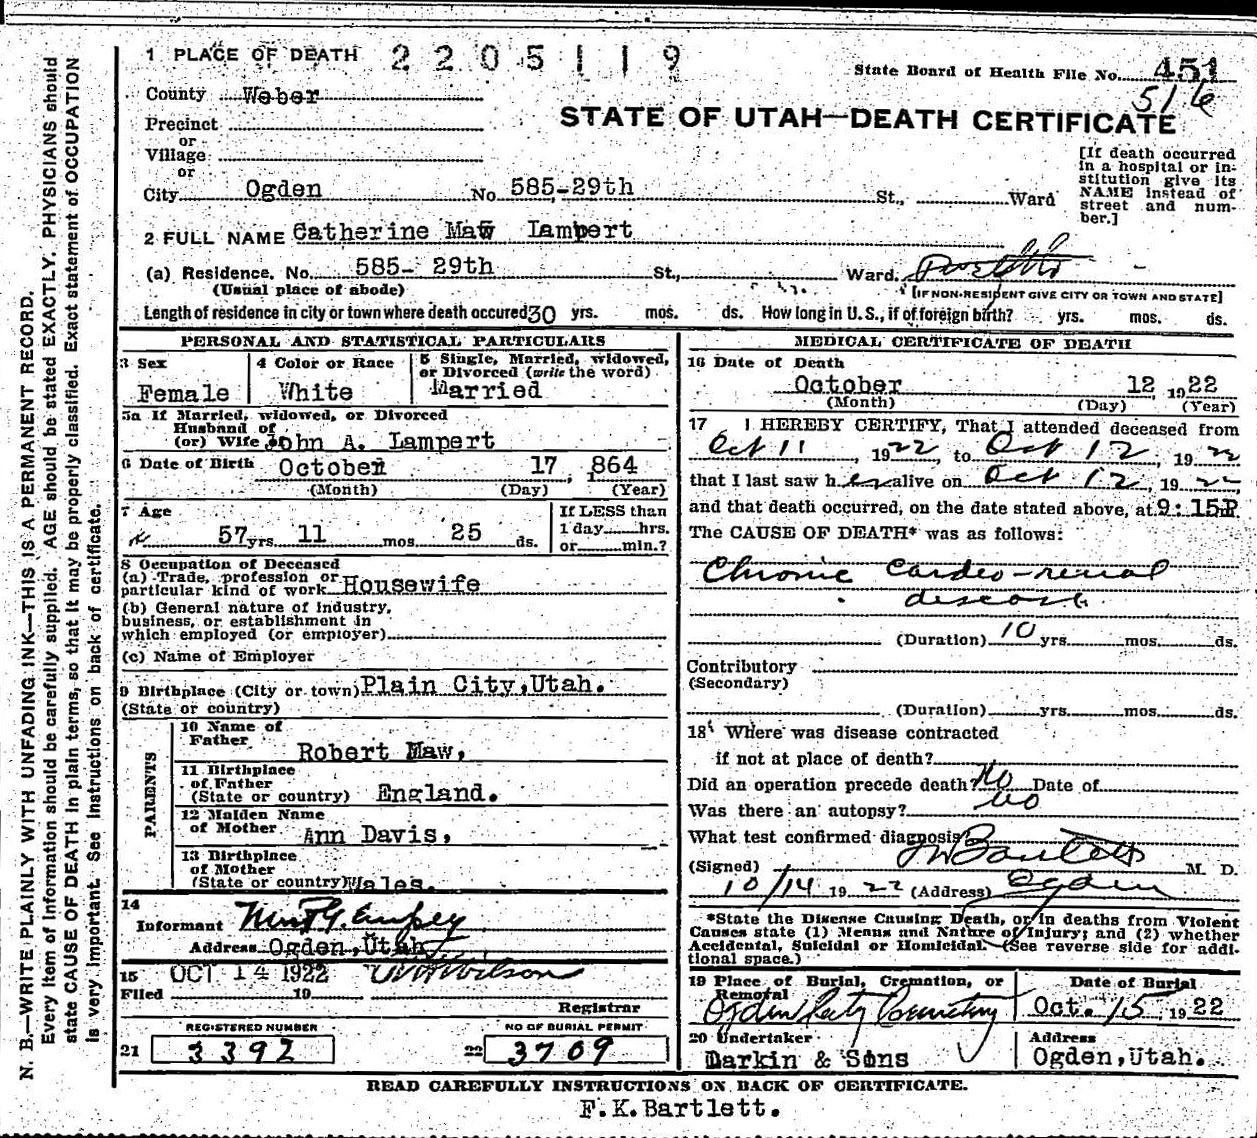 1 PLACE OF DEATH 2205119
State Board of Health File No. 451
516
County Weber
STATE OF UTAH—DEATH CERTIFICATE
Precinct
or
Village
or
City Ogden No. 585-29th St., Ward
[If death occurred in a hospital or institution give its NAME instead of street and number.]
2 FULL NAME Catherine Maw Lampert
(a) Residence. No. 585- 29th St., Ward.
(Usual place of abode)
[IF NON-RESIDENT GIVE CITY OR TOWN AND STATE]
Length of residence in city or town where death occured 30 yrs. mos. ds. How long in U. S., if of foreign birth? yrs. mos. ds.
PERSONAL AND STATISTICAL PARTICULARS
3 Sex
Female
4 Color or Race
White
5 Single, Married, widowed,
or Divorced (write the word)
Married
5a If Married, widowed, or Divorced
Husband of
(or) Wife of John A. Lampert
6 Date of Birth October 17 , 864
(Month) (Day) (Year)
7 Age
57 yrs 11 mos 25 ds.
If LESS than
1 day hrs.
or min.?
8 Occupation of Deceased
(a) Trade, profession or
particular kind of work Housewife
(b) General nature of industry,
business, or establishment in
which employed (or employer)
(c) Name of Employer
9 Birthplace (City or town) Plain City, Utah.
(State or country)
PARENTS
10 Name of
Father Robert Maw,
11 Birthplace
of Father
(State or country) England.
12 Maiden Name
of Mother Ann Davis,
13 Birthplace
of Mother
(State or country) Wales.
14
Informant
Address Ogden, Utah
15 OCT 14 1922 Wilson
Filed 19
Registrar
REGISTERED NUMBER
21 3392
NO OF BURIAL PERMIT
22 3709
MEDICAL CERTIFICATE OF DEATH
16 Date of Death
October 12 , 1922
(Month) (Day) (Year)
17 I HEREBY CERTIFY, That I attended deceased from
Oct 11 , 1922 to Oct 12 , 1922
that I last saw her alive on Oct 12 , 1922
and that death occurred, on the date stated above, at 9:15P
The CAUSE OF DEATH* was as follows:
Chronic Cardeo-renal
disease
(Duration) 10 yrs. mos. ds.
Contributory
(Secondary)
(Duration) yrs. mos. ds.
18 Where was disease contracted
if not at place of death?
Did an operation precede death? No Date of
Was there an autopsy? No
What test confirmed diagnosis?
(Signed) Bartlett M. D.
10/14 1922 (Address) Ogden
*State the Disease Causing Death, or in deaths from Violent
Causes state (1) Menns and Nature of Injury; and (2) whether
Accidental, Suicidal or Homicidal. (See reverse side for additional space.)
19 Place of Burial, Cremation, or
Removal
Ogden City Cemetery
Date of Burial
Oct. 15 , 1922
20 Undertaker
Larkin & Sons
Address
Ogden, Utah.
READ CAREFULLY INSTRUCTIONS ON BACK OF CERTIFICATE.
F.K.Bartlett.
N. B.—WRITE PLAINLY WITH UNFADING INK—THIS IS A PERMANENT RECORD.
Every item of information should be carefully supplied. AGE should be stated EXACTLY. PHYSICIANS should
state CAUSE OF DEATH in plain terms, so that it may be properly classified. Exact statement of OCCUPATION
is very important. See instructions on back of certificate.